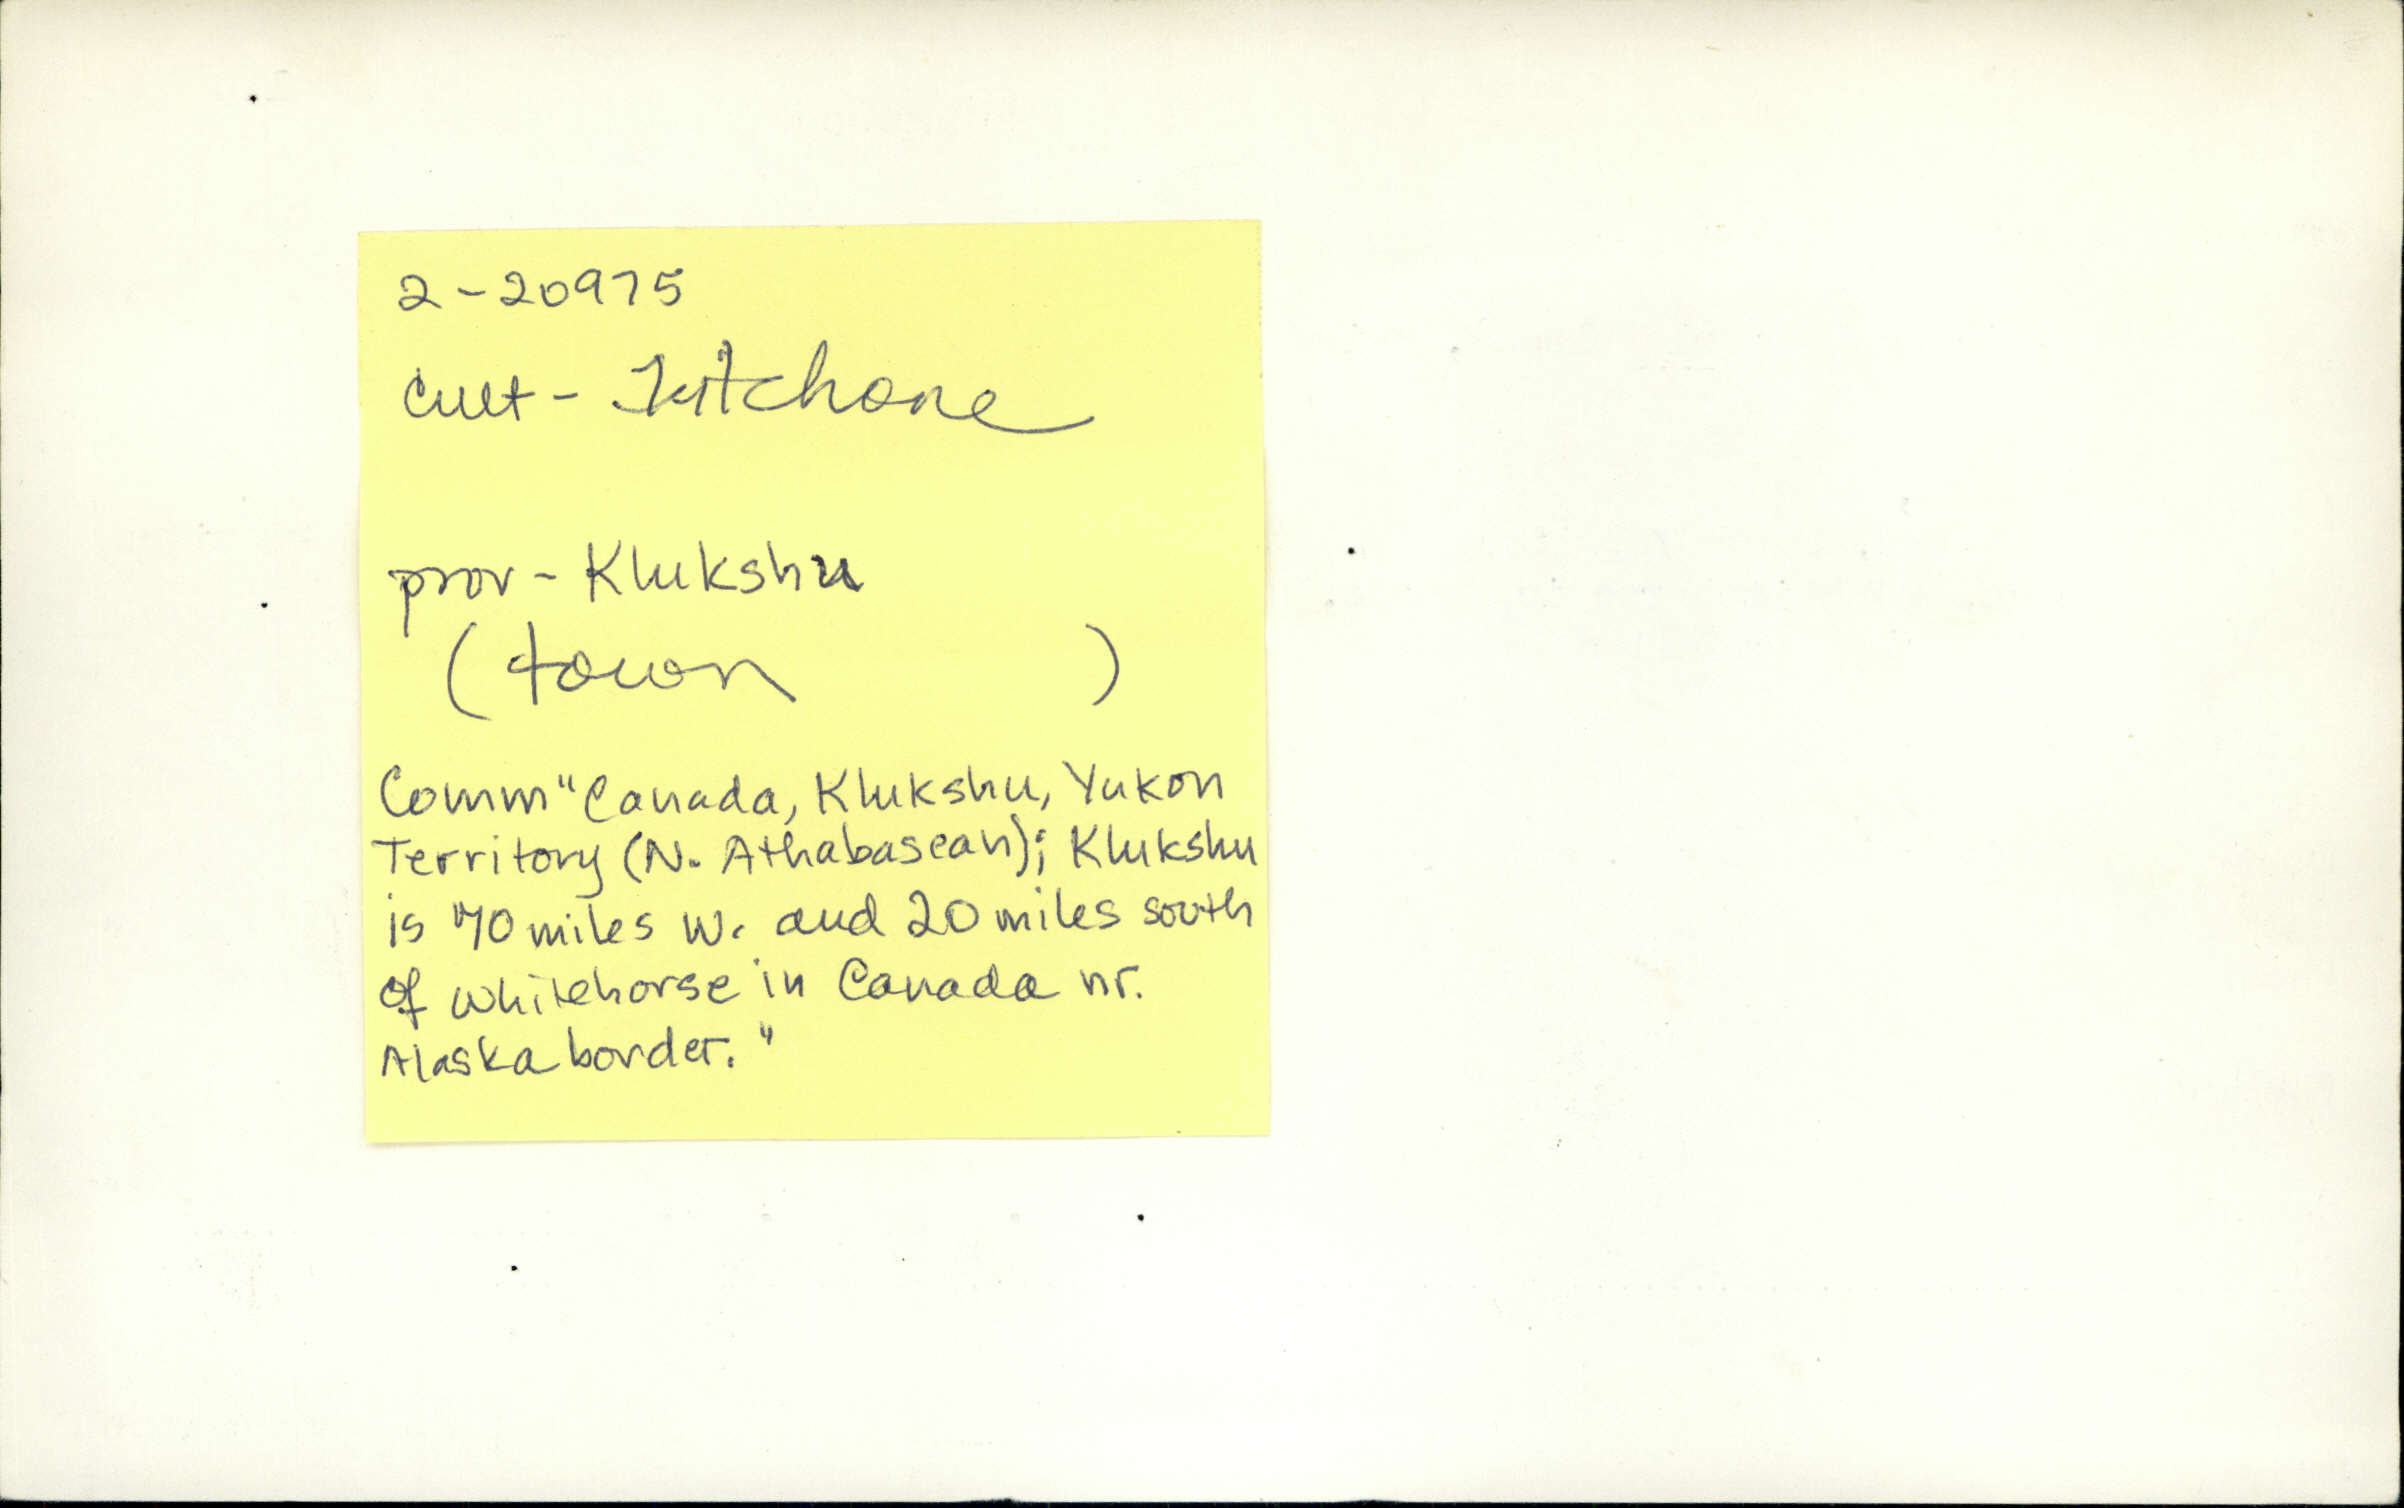 2-20975
Cult - Tutchone
prov - Klukshu
(town )
Comm "Canada, Klukshu, Yukon
Territory (N. Athabascan); Klukshu
is 70 miles W. and 20 miles south
of Whitehorse in Canada nr.
Alaska border."